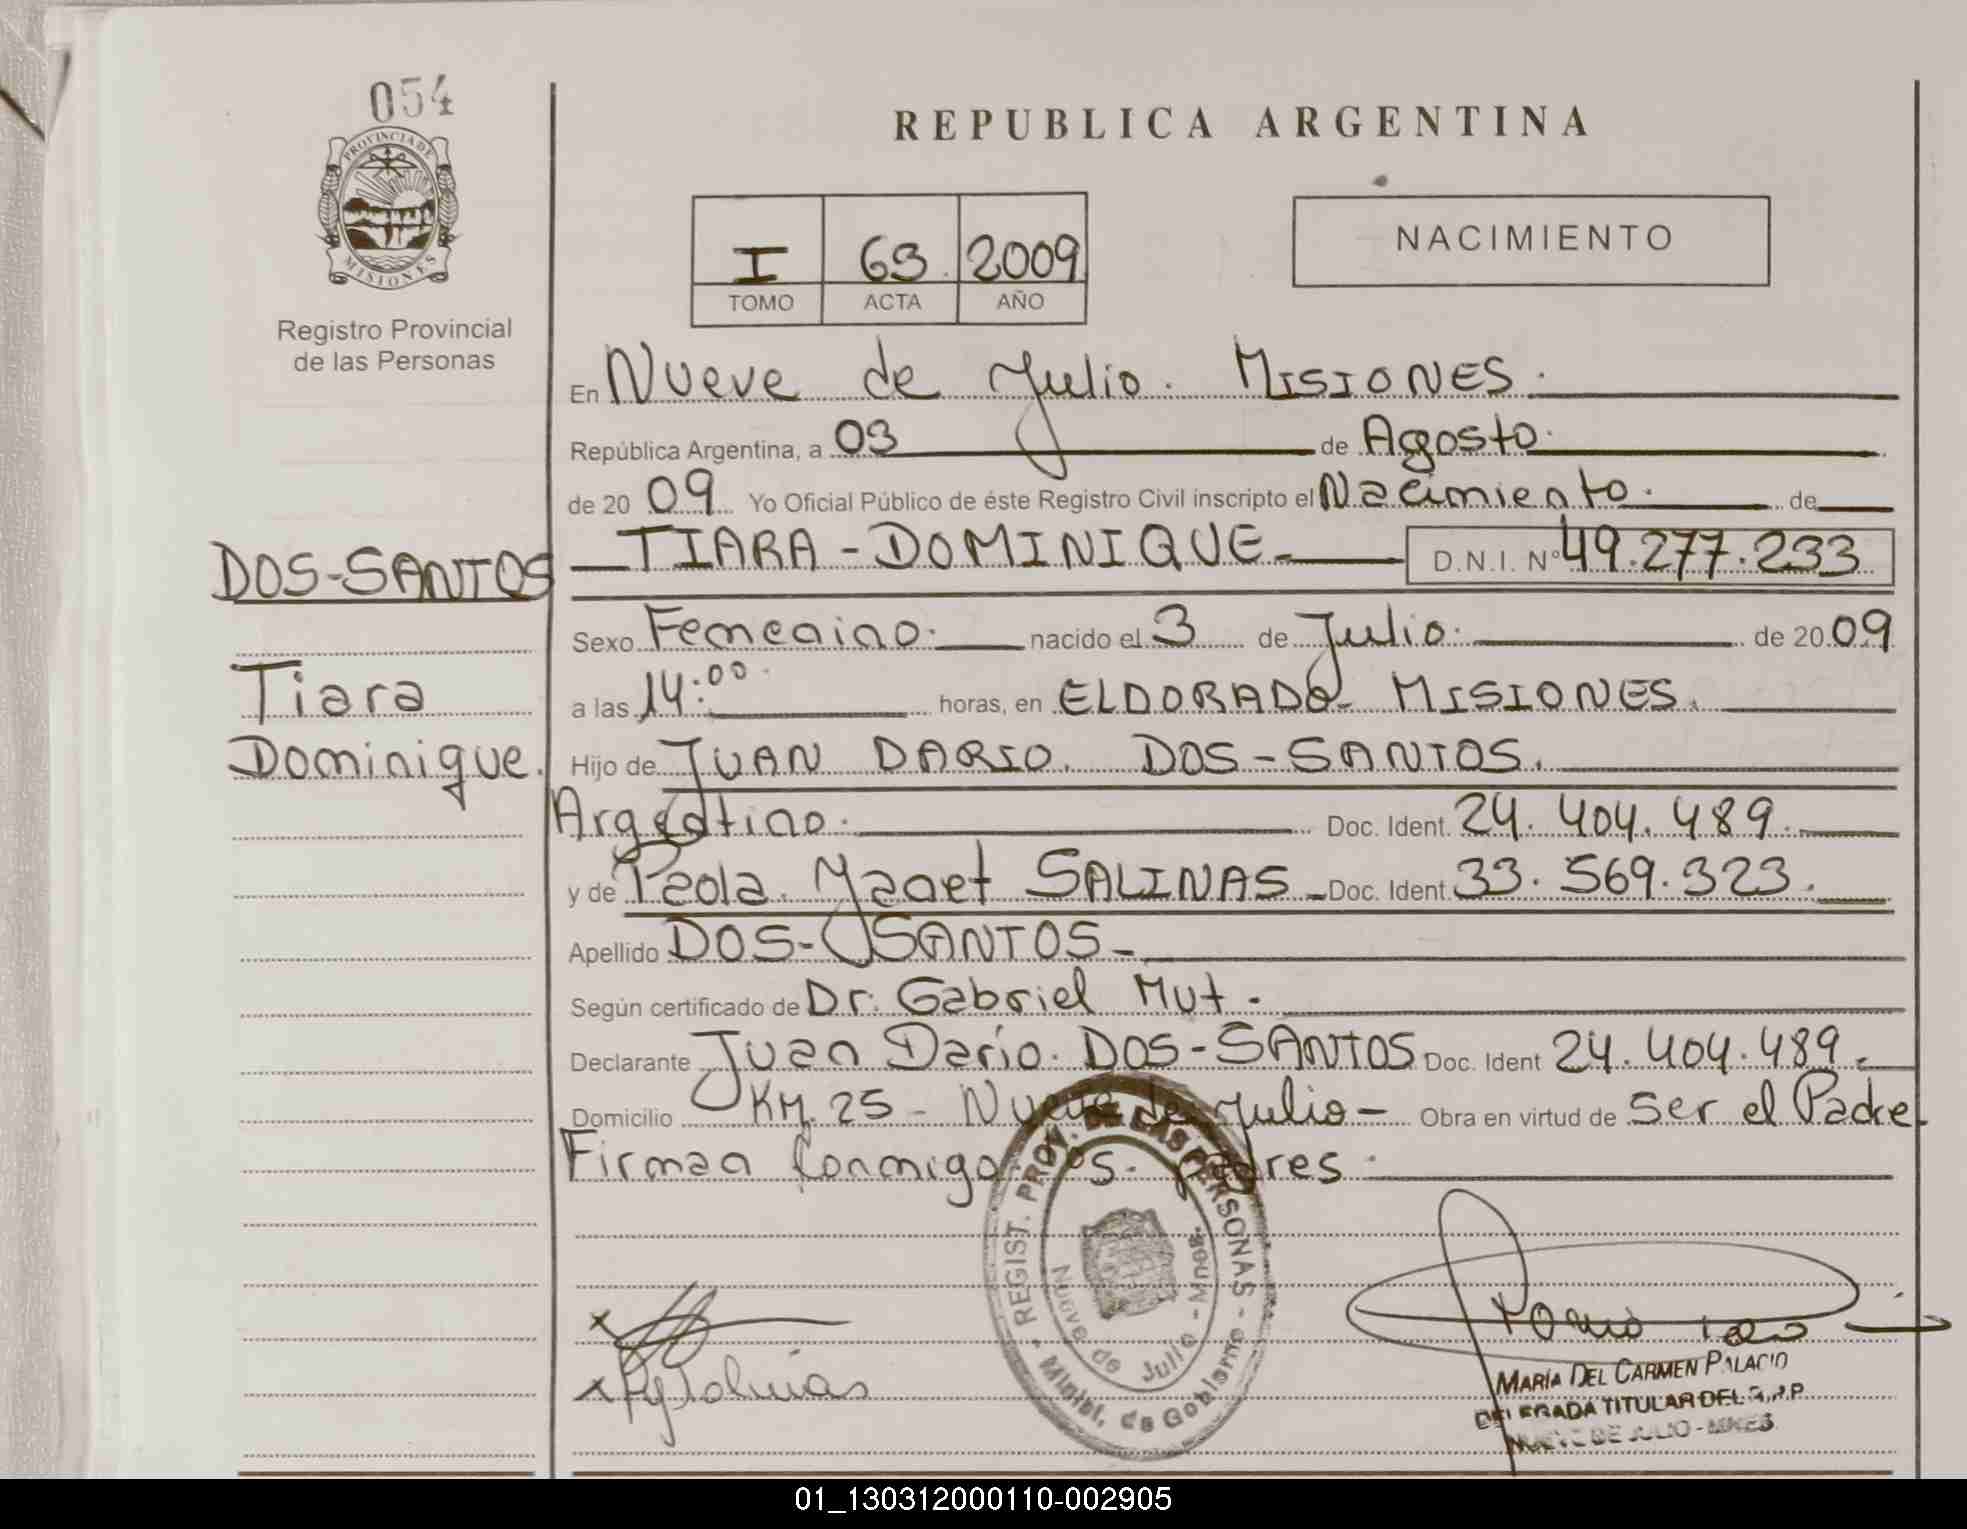 054
PROVINCIA DE
MISIONES
Registro Provincial
de las Personas
DOS-SANTOS
Tiara
Dominique.
REPUBLICA ARGENTINA
I 63 2009
TOMO ACTA AÑO
NACIMIENTO
En Nueve de Julio. MISIONES.
República Argentina, a 03 de Agosto.
de 20 09 Yo Oficial Público de éste Registro Civil inscripto el Nacimiento. de
TIARA - DOMINIQUE - D.N.I. Nº 49.277.233
Sexo Femenino. nacido el 3 de Julio. de 20 09
a las 14:00 horas, en ELDORADO - MISIONES.
Hijo de JUAN DARIO. DOS-SANTOS.
Argentino. Doc. Ident. 24.404.489.
y de Paola Yanet SALINAS - Doc. Ident. 33.569.323.
Apellido DOS-SANTOS -
Según certificado de Dr. Gabriel Mut.
Declarante Juan Dario. DOS-SANTOS Doc. Ident 24.404.489.
Domicilio KM. 25 - Nueve de Julio - Obra en virtud de ser el Padre.
Firman Conmigo los padres.
REGIST. PROV. DE LAS PERSONAS
Nueve de Julio - Mnes.
Minist. de Gobierno
MARÍA DEL CARMEN PALACIO
DELEGADA TITULAR DEL R.P.P
NUEVE DE JULIO - MNES
01_130312000110-002905